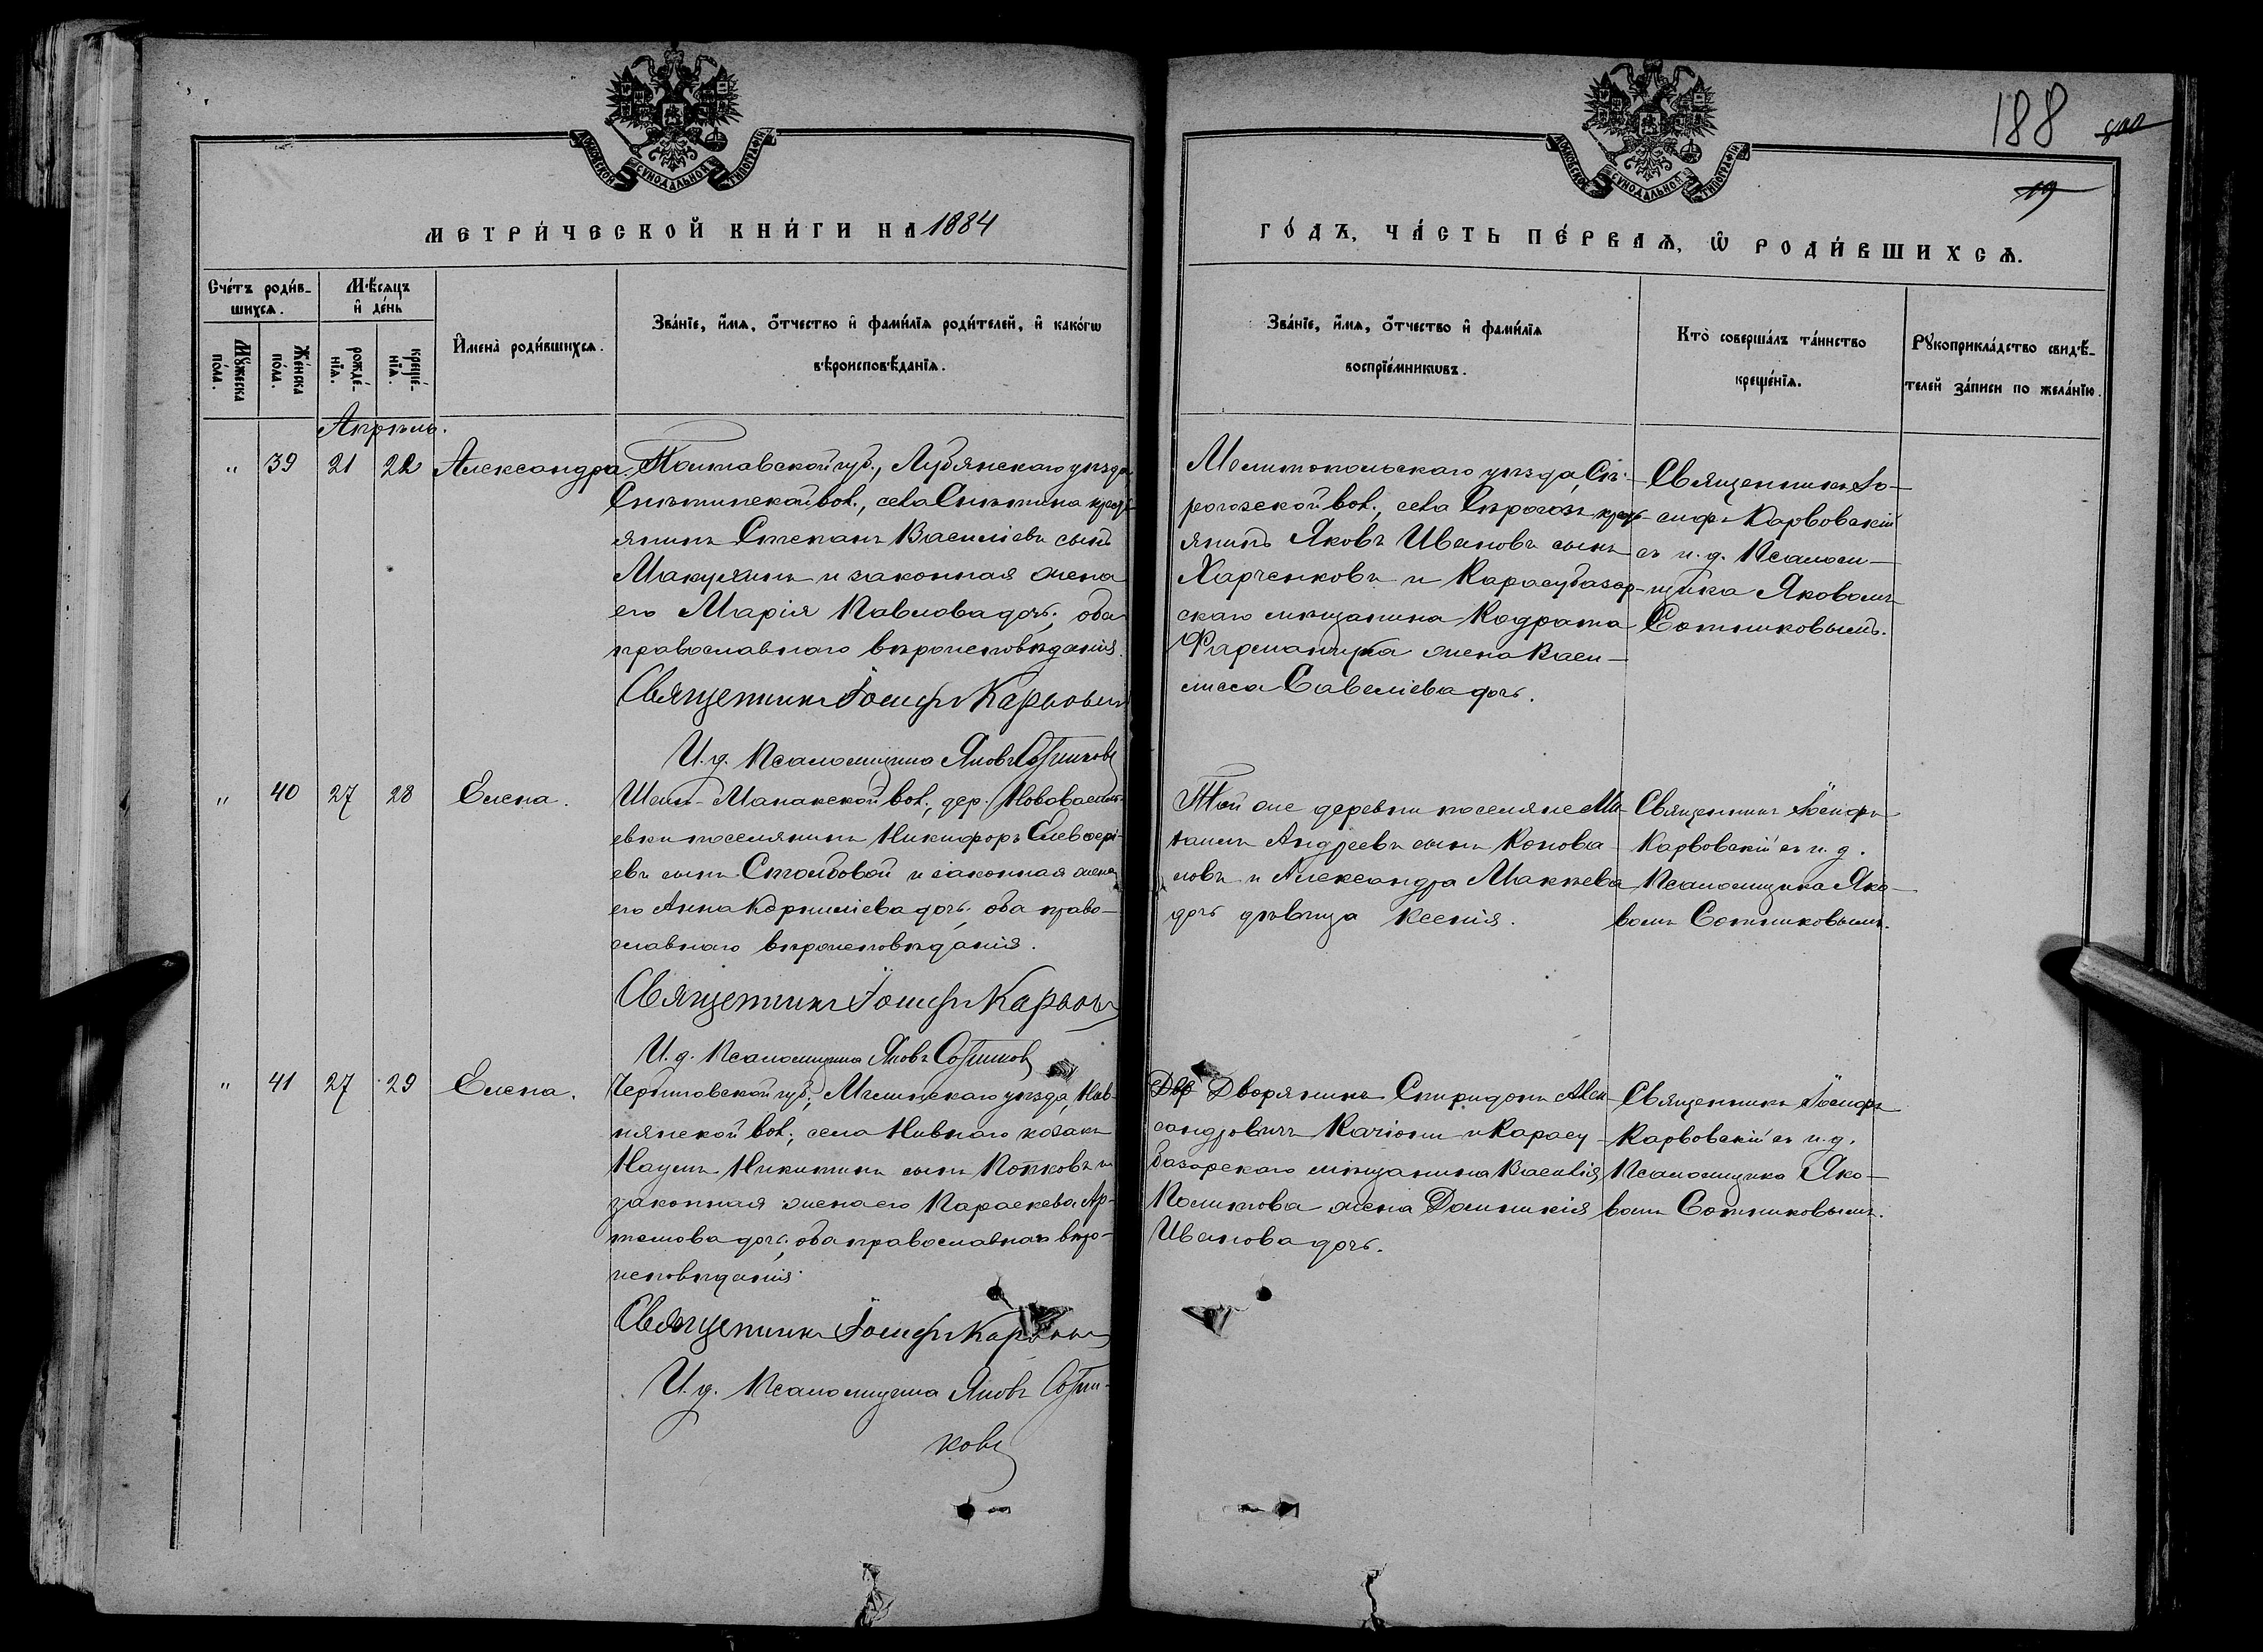 МОСКОВСКОЙ СѴНОДАЛЬНОЙ ТИПОГРАФІИ
МОСКОВСКОЙ СѴНОДАЛЬНОЙ ТИПОГРАФІИ
188
19
МЕТРИ́ЧЕСКОЙ КНИ́ГИ НА 1884
ГО́ДЪ, ЧА́СТЬ ПЕ́РВАѦ, Ѡ РОДИ́ВШИХСѦ.
Сче́тъ роди́в-
шихсѧ.
Мꙋ́жеска
по́ла.
Же́нска
по́ла.
Мѣ́сѧцъ
и҆ де́нь
рожде́-
нїѧ.
креще́-
нїѧ.
И҆мена̀ роди́вшихсѧ.
Зва́нїе, и҆́мѧ, ѻ҆́тчество и҆ фами́лїѧ роди́телей, и҆ како́гѡ
вѣроисповѣ́данїѧ.
Зва́нїе, и҆́мѧ, ѻ҆́тчество и҆ фами́лїѧ
воспрїе́мникѡвъ.
Кто̀ соверша́лъ та́инство
креще́нїѧ.
Рꙋкоприкла́дство свидѣ́-
телей за́писи по жела́нїю.
Апрѣль.
" 39 21 22 Александра
Полтавской губ., Лубянскаго уѣзда
Снѣтинской вол., села Снѣтина кресть-
янинъ Стефанъ Василіевъ сынъ
и законная жена
его Марія Павлова дочь; оба
православнаго вѣроисповѣданія.
Священникъ Іосифъ Карвовскій
И. д. Псаломщика Яковъ Сотниковъ
Мелитопольскаго уѣзда, Сѣ-
рогозской вол., села Сѣрогозъ кресть-
янинъ Яковъ Ивановъ сынъ
Харченковъ и Карасубазар-
скаго мѣщанина Кодрата
жена Васи-
лисса Савеліева дочь.
Священникъ Іо-
сифъ Карвовскій
съ и. д. Псалом-
щика Яковомъ
Сотниковымъ.
" 40 27 28 Елена.
вол., дер. Нововасиль-
евки поселянинъ Никифоръ Елевѳері-
евъ сынъ Столбовой и законная жена
его Анна Корниліева дочь; оба право-
славнаго вѣроисповѣданія.
Священникъ Іосифъ Карвовс
И. д. Псаломщика Яковъ Сотниковъ
Той же деревни поселяне Ми-
хаилъ Андреевъ сынъКонова-
ловъ и Александра Макѣева
дочь дѣвица Ксенія.
Священникъ Іосифъ
Карвовскій съ и. д.
Псаломщика Яко-
вомъ Сотниковымъ.
" 41 27 29 Елена.
Черниговской губ., Мглинскаго уѣзда, Нив-
нянской вол., села Нивнаго козакъ
Наумъ Никитинъ сынъ Попковъ и
законная жена его Параскева Ар-
темова дочь; оба православнаго вѣро-
исповѣданія.
Священникъ Іосифъ Карвовс
И. д. Псаломщика Яковъ Сотни-
ковъ
Двр Дворянинъ Спиридонъ Алек-
сандровичъ Качіони и Карасу-
базарскаго мѣщанина Василія
Поликтова жена Домникія
Иванова дочь.
Священникъ Іосифъ
Карвовскій съ и. д.
Псаломщика Яко-
вомъ Сотниковымъ.